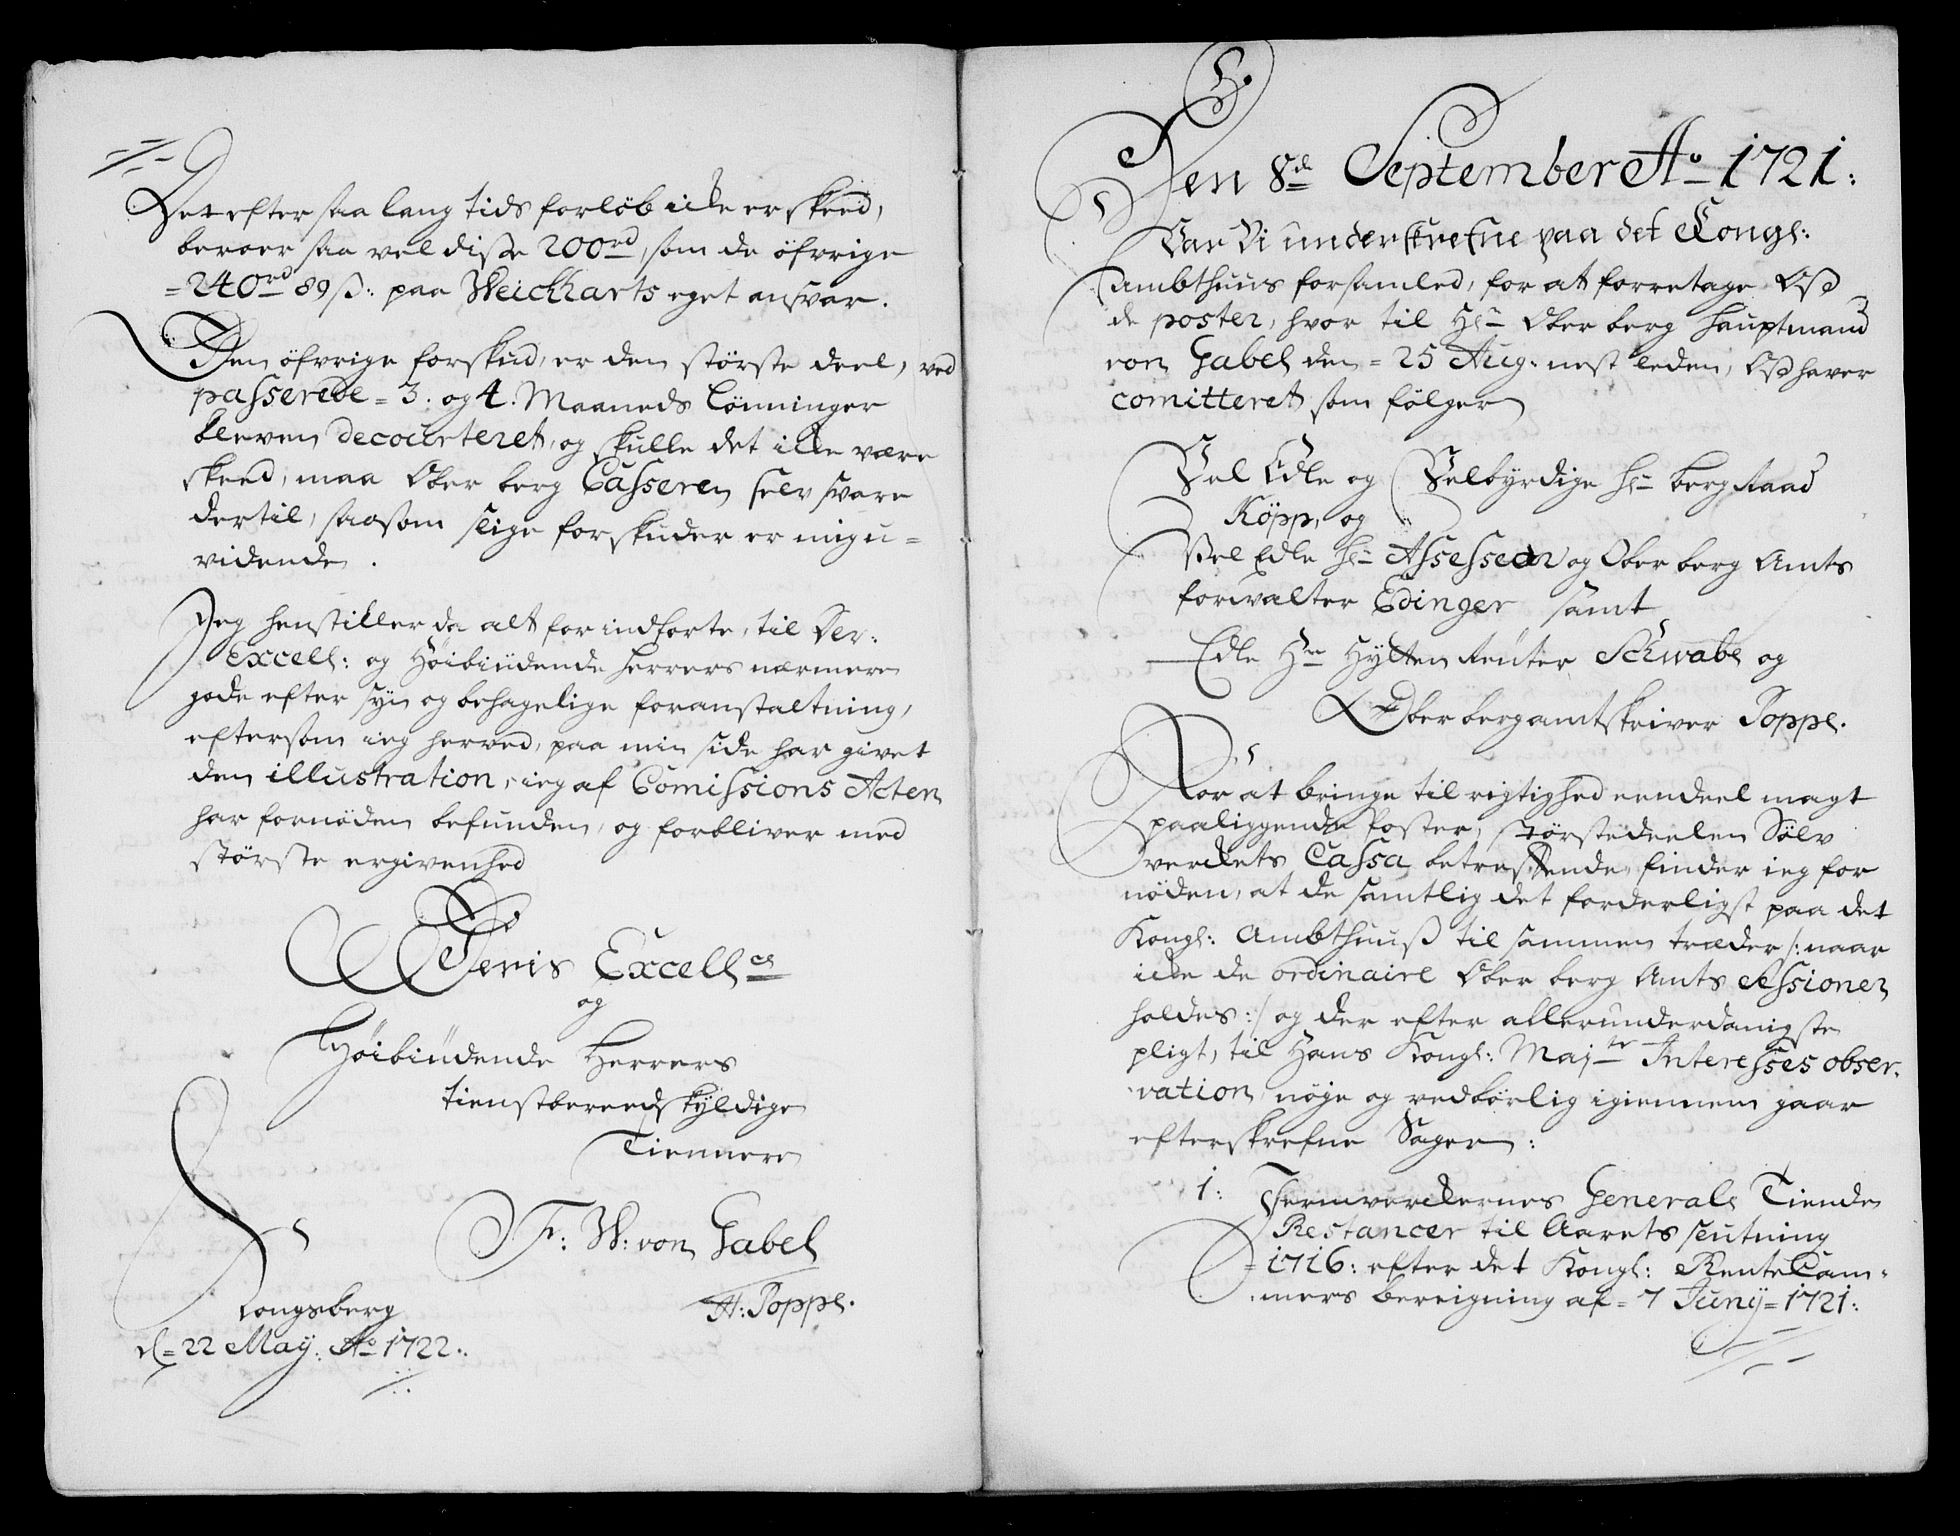 Det efter saa lang tids forløb icke er skeed,
beroer saa vel disse 200 rd, som de øfvrige
=240 rd 89 ß: paa Weickharts eget ansvar.
Den øfvrige forskud, er den største deel, ved
passerede = 3. og 4. Maaneds Lønninger
bleven decourteret, og skulle det icke være
skeed, maa Ober berg Casseren selv svare
dertil, saasom slige forskuder er mig u=
vidende.
Jeg henstiller da alt for indførte, til Der:
Excell: og Høibiüdende Herrers nærmere
gode efter syn og behagelige foranstaltning,
eftersom ieg herved, paa min side har givet
den illustration, ieg af Comissions Acten
har fornøden befunden, og forbliver med
største ergivenhed
Deris Excell ce
og
Høibiüdende Herrers
tienstbereedskyldige
Tiennere
Fr: W: von Gabel
H: Poppe.
Kongsberg
d= 22 May: Ao 1722.
Den 8de September Ao 1721:
Var Vi underskrefne paa det Kongl:
Ambthuus forsamled, for at forretage Oss
de poster, hvor til Hr Ober berg hauptmand
von Gabel den = 25 Aug: nest leden, Oss haver
comitteret som følger
Vel Edle og Velbyrdige Hr berg Raad
Köpp, og
Vel Edle Hr Assessor og Ober berg Amts
forvalter Edinger samt
Edle Hr Hytten Reüter Schwabe og
Ober bergamtskriver Poppe.
For at bringe til rigtighed eendeel magt
paaliggende Poster, størstedeelen Sølv
verckets Cassa betreffende, finder ieg for
nøden, at de samtlig det forderligst paa det
Kongl: Ambthuuß til sammen træder /: naar
icke de ordinaire Ober berg Amts Sessioner
holdes :/ og der efter allerunderdanigste
pligt, til Hans Kongl: Maj ts Interesses obser-
vation, nøje og vedbørlig igiennem gaar
efterskrefne Sager:
1: Jernverckernes Generale Tiende
Restancer til Aarets slutning
=1716: efter det Kongl: Rente Cam-
mers bereigning af = 7 Juny = 1721: